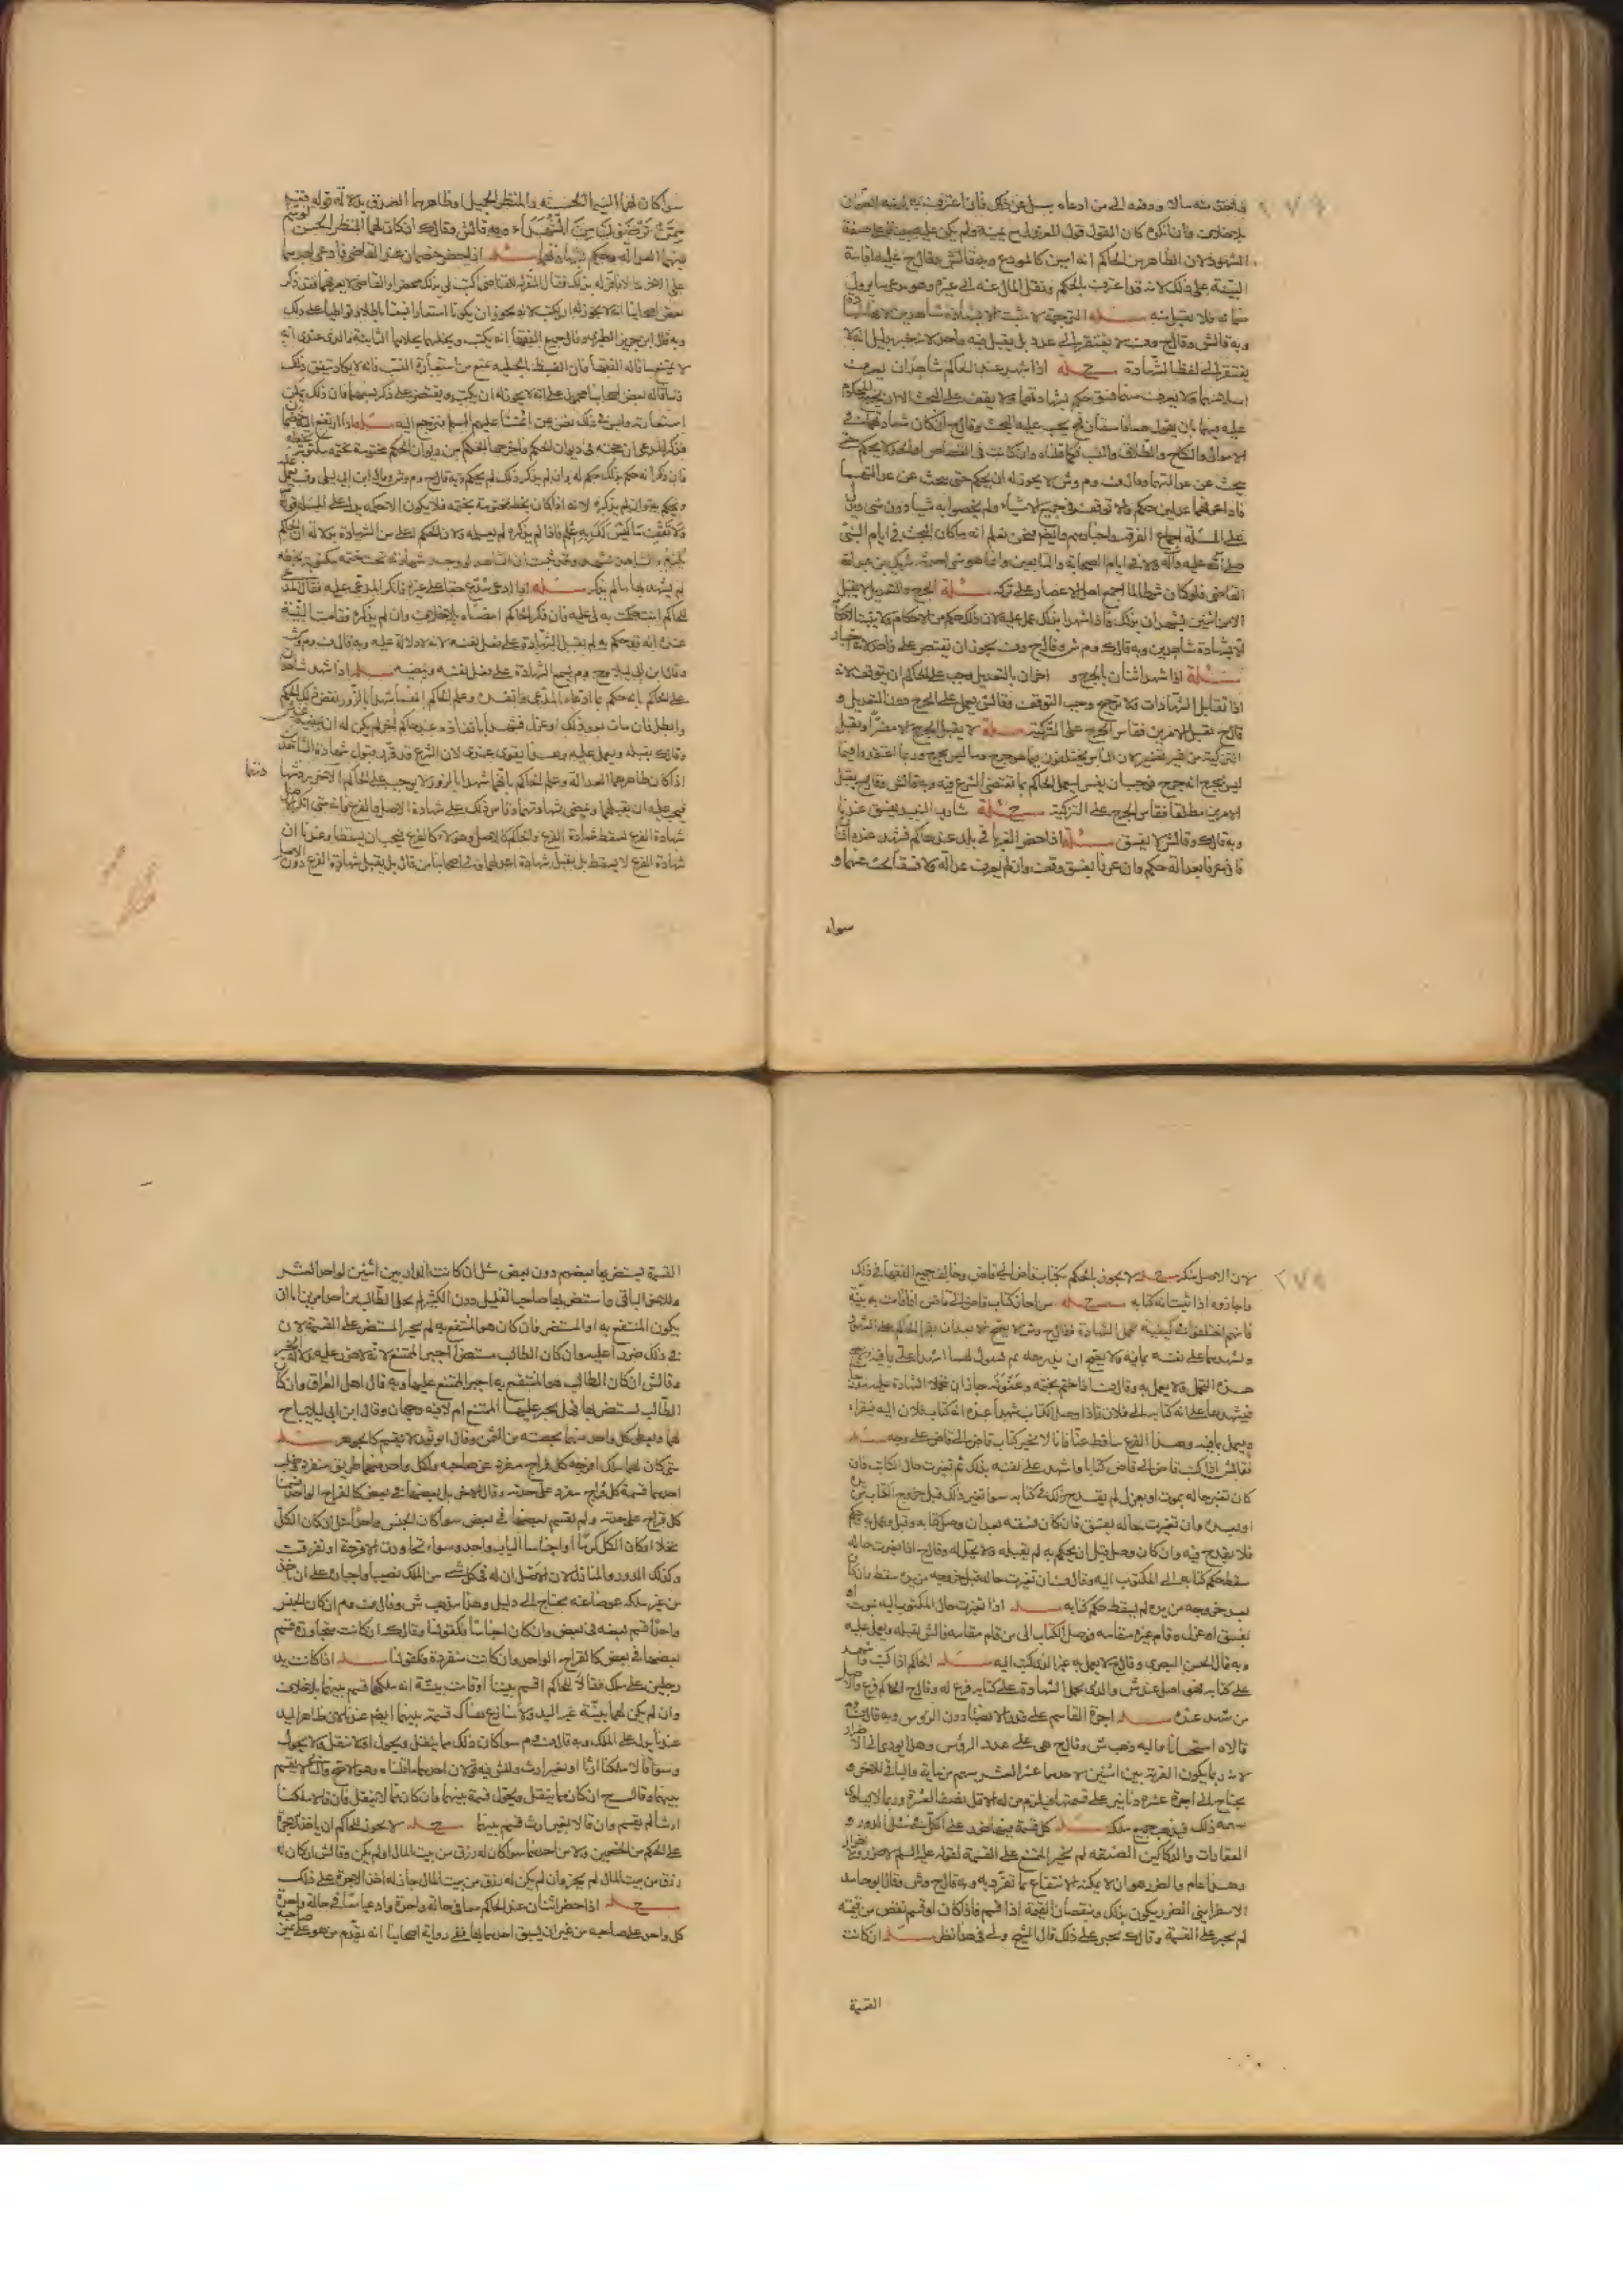 ٢٧٤
البينة على ذلك لانه قد اعترف بالحكم ونقل المال عنه الى غيره وهو يدعى ما يزيل
ضمانه فلا يقبل منه مسئلة الترجمة لا تثبت الا بشهادة شاهدين لانها شهادة
وبه قال ش وقال ح وف لا يفتقر الى عدد بل يقبل فيه واحد لانه خبر بدليل انه لا
يفتقر الى لفظ الشهادة مسئلة اذا شهد عند الحاكم شاهدان يعرف
اسلامهما ولا يعرف منهما فسق حكم بشهادتهما ولا يقف على البحث الا ان يجرح المحكوم
عليه فيهما بان يقول هما فاسقان فح يجب عليه البحث وقال ح ان كان شهادتهما في
الاموال والنكاح والطلاق والنسب كما قلناه وان كانت في القصاص او الحد لا يحكم حتى
يبحث عن عدالتهما وقال ف وم وش لا يجوز له ان يحكم حتى يبحث عن عدالتهما
فاذا عرفهما عدلين حكم والا توقف في جميع الاشياء ولم يخصوا به شيئا دون شئ دليلنا
على المسئلة اجماع الفرقة واخبارهم وايضا نحن نعلم انه ما كان البحث في ايام النبى
صلى الله عليه وآله ولا في ايام الصحابة والتابعين وانما هو شئ احدثه شريك بن عبد الله
القاضى فلو كان شرطا لما اجمع اهل الاعصار على تركه مسئلة الجرح والتعديل لا يقبل
الا من اثنين يشهدان بذلك فاذا شهدا بذلك عمل عليه لان ذلك حكم من الاحكام ولا يثبت الاحكام
الا بشهادة شاهدين وبه قال ك وم وش وقال ح وف يجوز ان يقتصر على واحد لانه اخبار
مسئلة اذا شهد اثنان بالجرح و اخران بالتعديل وجب على الحاكم ان يتوقف لانه
اذا تقابل الشهادات ولا ترجيح وجب التوقف وقال ش يعمل على الجرح دون التعديل و
قال ح يقبل الامرين فقاس الجرح على التزكية مسئلة لا يقبل الجرح الا مفسرا ويقبل
التزكية من غير تفسير لان الناس يختلفون فيما هو جرح وما ليس بجرح وربما اعتقدوا فيما
ليس بجرح انه جرح فيجب ان يفسر ليعمل الحاكم بما تقتضى الشرع فيه وبه قال ش وقال ح يقبل
الامرين مطلقا فقاس الجرح على التزكية مسئلة شارب النبيذ يفسق عندنا
وبه قال ك وقال ش لا يفسق مسئلة اذا حضر الغرباء في بلد عند حاكم فشهد عنده اثنان
فان عرفا بعدالة حكم وان عرفا بفسق وقف وان لم يعرف عدالة ولا فسقا بحث عنهما و
سواء
سواء كان لهما السيماء الحسنة والمنظر الجميل او ظاهرهما الصدق بدلالة قوله
ممن ترضون من الشهداء وبه قال ش وقال ك ان كان لهما المنظر الحسن توسم
فيهما العدالة وحكم بشهادتهما مسئلة اذا حضر خصمان عند القاضى فادعى احدهما
على الاخر مالا فاقر له بذلك فقال المقر له للقاضى اكتب لى بذلك محضرا والقاضى لا يعرفهما فقد ذكر
بعض اصحابنا انه لا يجوز له ان يكتب لانه يجوز ان يكونا استعارا نسبا باطلا وتواطيا على ذلك
وبه قال ابن جرير الطبرى وقال جميع الفقهاء انه يكتب ويحليهما بحلاهما الثابتة والذى عندى انه
لا يمتنع ما قاله الفقهاء فان الضبط بالحلية يمنع من استعارة النسب فانه لا يكاد يتفق ذلك
استعارته وليس في ذلك نص عن ائمتنا عليهم السلم نرجع اليه مسئلة اذا ارتفع اليه خصمان
فذكر المدعى ان حجته في ديوان الحكم فاخرجها الحاكم من ديوان الحكم مختومة بختمه مكتوبة بخطه
فان ذكر انه حكم بذلك حكم له وان لم يذكر ذلك لم يحكم وبه قال ح وم وش وقال ابن ابى ليلى وف يعمل عليه
ويحكم به وان لم يذكره لانه اذا كان بخطه مختومة بختمه فلا يكون الا حكمه دليلنا على المسئلة قوله
ولا تقف ما ليس لك به علم فاذا لم يذكره لم يعمل به
لم يشهد بها ما لم يذكر مسئلة اذا ادعى مدع حقا على غيره فانكر المدعى عليه فقال المدعى
للحاكم انت حكمت به لى عليه فان ذكر الحاكم امضاه بلا خلاف وان لم يذكره فقامت البينة
عنده انه قد حكم به لم يقبل الشهادة على فعل نفسه لانه لا دلالة عليه وبه قال ف وش
وقال ابن ابى ليلى وح وم يسمع الشهادة على فعل نفسه ويمضيه مسئلة اذا شهد شاهدان
على الحاكم بانه حكم بما ادعاه المدعى وانفذه وعلم الحاكم انهما شهدا بالزور نقض ذلك الحكم
وابطله فان مات بعد ذلك او عزل فشهدا بانفاذه عند حاكم اخر لم يكن له ان يمضيه عند ش
وقال ك يقبله ويعمل عليه وهذا يقوى عندى لان الشرع قد قرر قبول شهادة الشاهدين
اذا كان ظاهرهما العدالة وعلم الحاكم بانهما شهدا بالزور لا يوجب على الحاكم الاخر رد شهادتهما
فيجب عليه ان يقبلهما ويمضى شهادتهما وقاس ذلك على شهادة الاصل والفرع فانه متى انكر الاصل
شهادة الفرع سقط شهادة الفرع والحاكم كالاصل وهؤلاء كالفرع فيجب ان يسقطا وعندنا ان
شهادة الفرع لا يسقط بل يقبل شهادة اعدلهما وفي اصحابنا من قال بل يقبل شهادة الفرع دون الاصل
٢٧٥
لان الاصل منكر مسئلة لا يجوز الحكم بكتاب قاض الى قاض وخالف جميع الفقهاء في ذلك
واجازوه اذا ثبت انه كتابه مسئلة من اجاز كتاب قاض الى قاض اذا قامت به بينة
فانهم اختلفوا في كيفية تحمل الشهادة فقال ح وش لا يصح الا بعد ان يقرأ الحاكم على الشهود
هذا التحمل ولا يعمل به وقال ف اذا ختمه بختمه وعنونه جاز ان يتحملا الشهادة عليه مدرجا
فيشهدهما على انه كتابه الى فلان فاذا وصل الكتاب شهدا عنده انه كتاب فلان اليه فيقرأه
ويعمل بما فيه وهذا الفرع ساقط عنا فانا لا نجيز كتاب قاض الى قاض على وجه مسئلة
قال ش اذا كتب قاض الى قاض كتابا واشهد على نفسه بذلك ثم تغيرت حال الكاتب فان
كان تغير حاله بموت او بعزل لم يقدح ذلك في كتابه سواء تغير ذلك قبل خروج الكتاب من يده
او بعده وان تغيرت حاله بفسق فان كان فسقه بعد ان وصل كتابه وقبل وعمل به وحكم
فلا يقدح فيه وان كان وصل قبل ان يحكم به لم يقبله ولا يعمل له وقال ح اذا تغيرت حاله
سقط حكم كتابه الى المكتوب اليه وقال ف ان تغيرت حاله قبل خروجه من يده سقط وان كان
بعد خروجه من يده لم يسقط حكم كتابه مسئلة اذا تغيرت حال المكتوب اليه بموت او
بفسق او عزل وقام غيره مقامه فوصل الكتاب الى من قام مقامه قال ش يقبله ويعمل عليه
وبه قال الحسن البصرى وقال ح لا يعمل به غير الذى كتب اليه مسئلة الحاكم اذا كتب واشهد
على كتابه فهو اصل عند ش والذى تحمل الشهادة على كتابه فرع له وقال ح الحاكم فرع والاصل
من شهد عنده مسئلة اجرة القاسم على قدر الانصباء دون الرؤس وبه قال ف وم
قالاه استحسانا واليه ذهب ش وقال ح هى على عدد الرؤس وهذا يودى الى الاضرار
لانه ربما يكون القرية بين اثنين لاحدهما عشر العشر سهم من مأية والباقى للاخر و
يحتاج الى اجرة عشرة دنانير على قسمتها فيلزم من له الاقل نصف العشرة وربما لا يساوى
سهمه ذلك فيذهب جميع ملكه مسئلة كل قسمة فيها ضرر على الكل مثل الدور و
العقارات والدكاكين الضيقة لم يجبر الممتنع على القسمة لقوله عليه السلم لا ضرر ولا ضرار
وهذا عام والضرر هو ان لا يمكنه الانتفاع بما تفرد به وبه قال ح وش وقال ابو حامد
الاسفراينى الضرر يكون بذلك وبنقصان القيمة اذا قسم فاذا كان لو قسم نقص من قيمته
لم يجبر على القسمة وقال ك يجبر على ذلك قال الشيخ ولى في هذا نظر مسئلة ان كانت
القسمة
القسمة يستضر بها بعضهم دون بعض مثل ان كانت الدار بين اثنين لواحد العشر
وللاخر الباقى واستضر بها صاحب القليل دون الكثير لم يخل الطالب من احد امرين اما ان
يكون المنتفع به او المستضر فان كان هو المنتفع به لم يجبر المستضر على القسمة لان
في ذلك ضررا عليه وان كان الطالب مستضرا اجبر الممتنع لانه لا ضرر عليه
وقال ش ان كان الطالب هو المنتفع به اجبر الممتنع عليها وبه قال اهل العراق وان كان
الطالب يستضر بها فهل يجبر عليها الممتنع ام لا فيه وجهان وقال ابن ابى ليلى يباع
لهما ويعطى كل واحد منهما بحصته من الثمن وقال ابو ثور لا يقسم كالجوهر مسئلة
متى كان لهما ملك اقرحة كل قراح مفرد عن صاحبه ولكل واحد منهما طريق منفرد فطلب
احدهما قسمة كل قراح مفرد على حدته وقال الاخر بل بعضها في بعض كالقراح الواحد قسمنا
كل قراح على حدته ولم نقسم بعضها في بعض سواء كان الجنس واحدا مثل ان كان الكل
نخلا او كان الكل كرما او اجناسا الباب واحد وسواء تجاورت الاقرحة او تفرقت
وكذلك الدور والمنازل لان الاصل ان له في كل شئ من الملك نصيبا واجباره على ان ياخذ
من غير ملكه عوضا عنه يحتاج الى دليل وهذا مذهب ش وقال ف وم ان كان الجنس
واحدا قسم بعضه في بعض وان كان اجناسا فكقولنا وقال ك ان كانت متجاورة قسم
بعضها في بعض كالقراح الواحد وان كانت متفرقة فكقولنا مسئلة اذا كانت يد
رجلين على ملك فقالا للحاكم اقسم بيننا او قامت بينة انه ملكهما قسم بينهما بلا خلاف
وان لم يكن لهما بينة غير اليد ولا منازع هناك قسمه بينهما ايضا عندنا لان ظاهر اليد
عندنا يدل على الملك وبه قال ف وم سواء كان ذلك مما ينقل ويحول او لا ينقل ولا يحول
وسواء قالا ملكنا ارثا او بغير ارث وللش فيه قولان احدهما ما قلناه وهو الاصح والثانى لا يقسم
بينهما وقال ح ان كان مما ينقل ويحول قسمه بينهما وان كان مما لا ينقل فان قالا ملكنا
ارثا لم يقسم وان قالا بغير ارث قسم بينهما مسئلة لا يجوز للحاكم ان ياخذ الاجرة
على الحكم من الخصمين ولا من احدهما سواء كان له رزق من بيت المال او لم يكن وقال ش ان كان له
رزق من بيت المال لم يجز وان لم يكن له رزق من بيت المال جاز له اخذ الاجرة على ذلك
مسئلة اذا حضر اثنان عند الحاكم معا في حالة واحدة وادعيا معا في حالة واحدة
كل واحد على صاحبه من غير ان يسبق احدهما بها ففى رواية اصحابنا انه يقدم من هو على يمين صاحبه